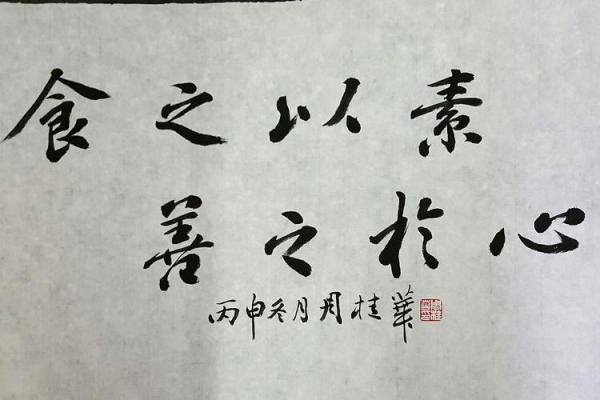 食之以素
善之於心
丙申冬月周桂華